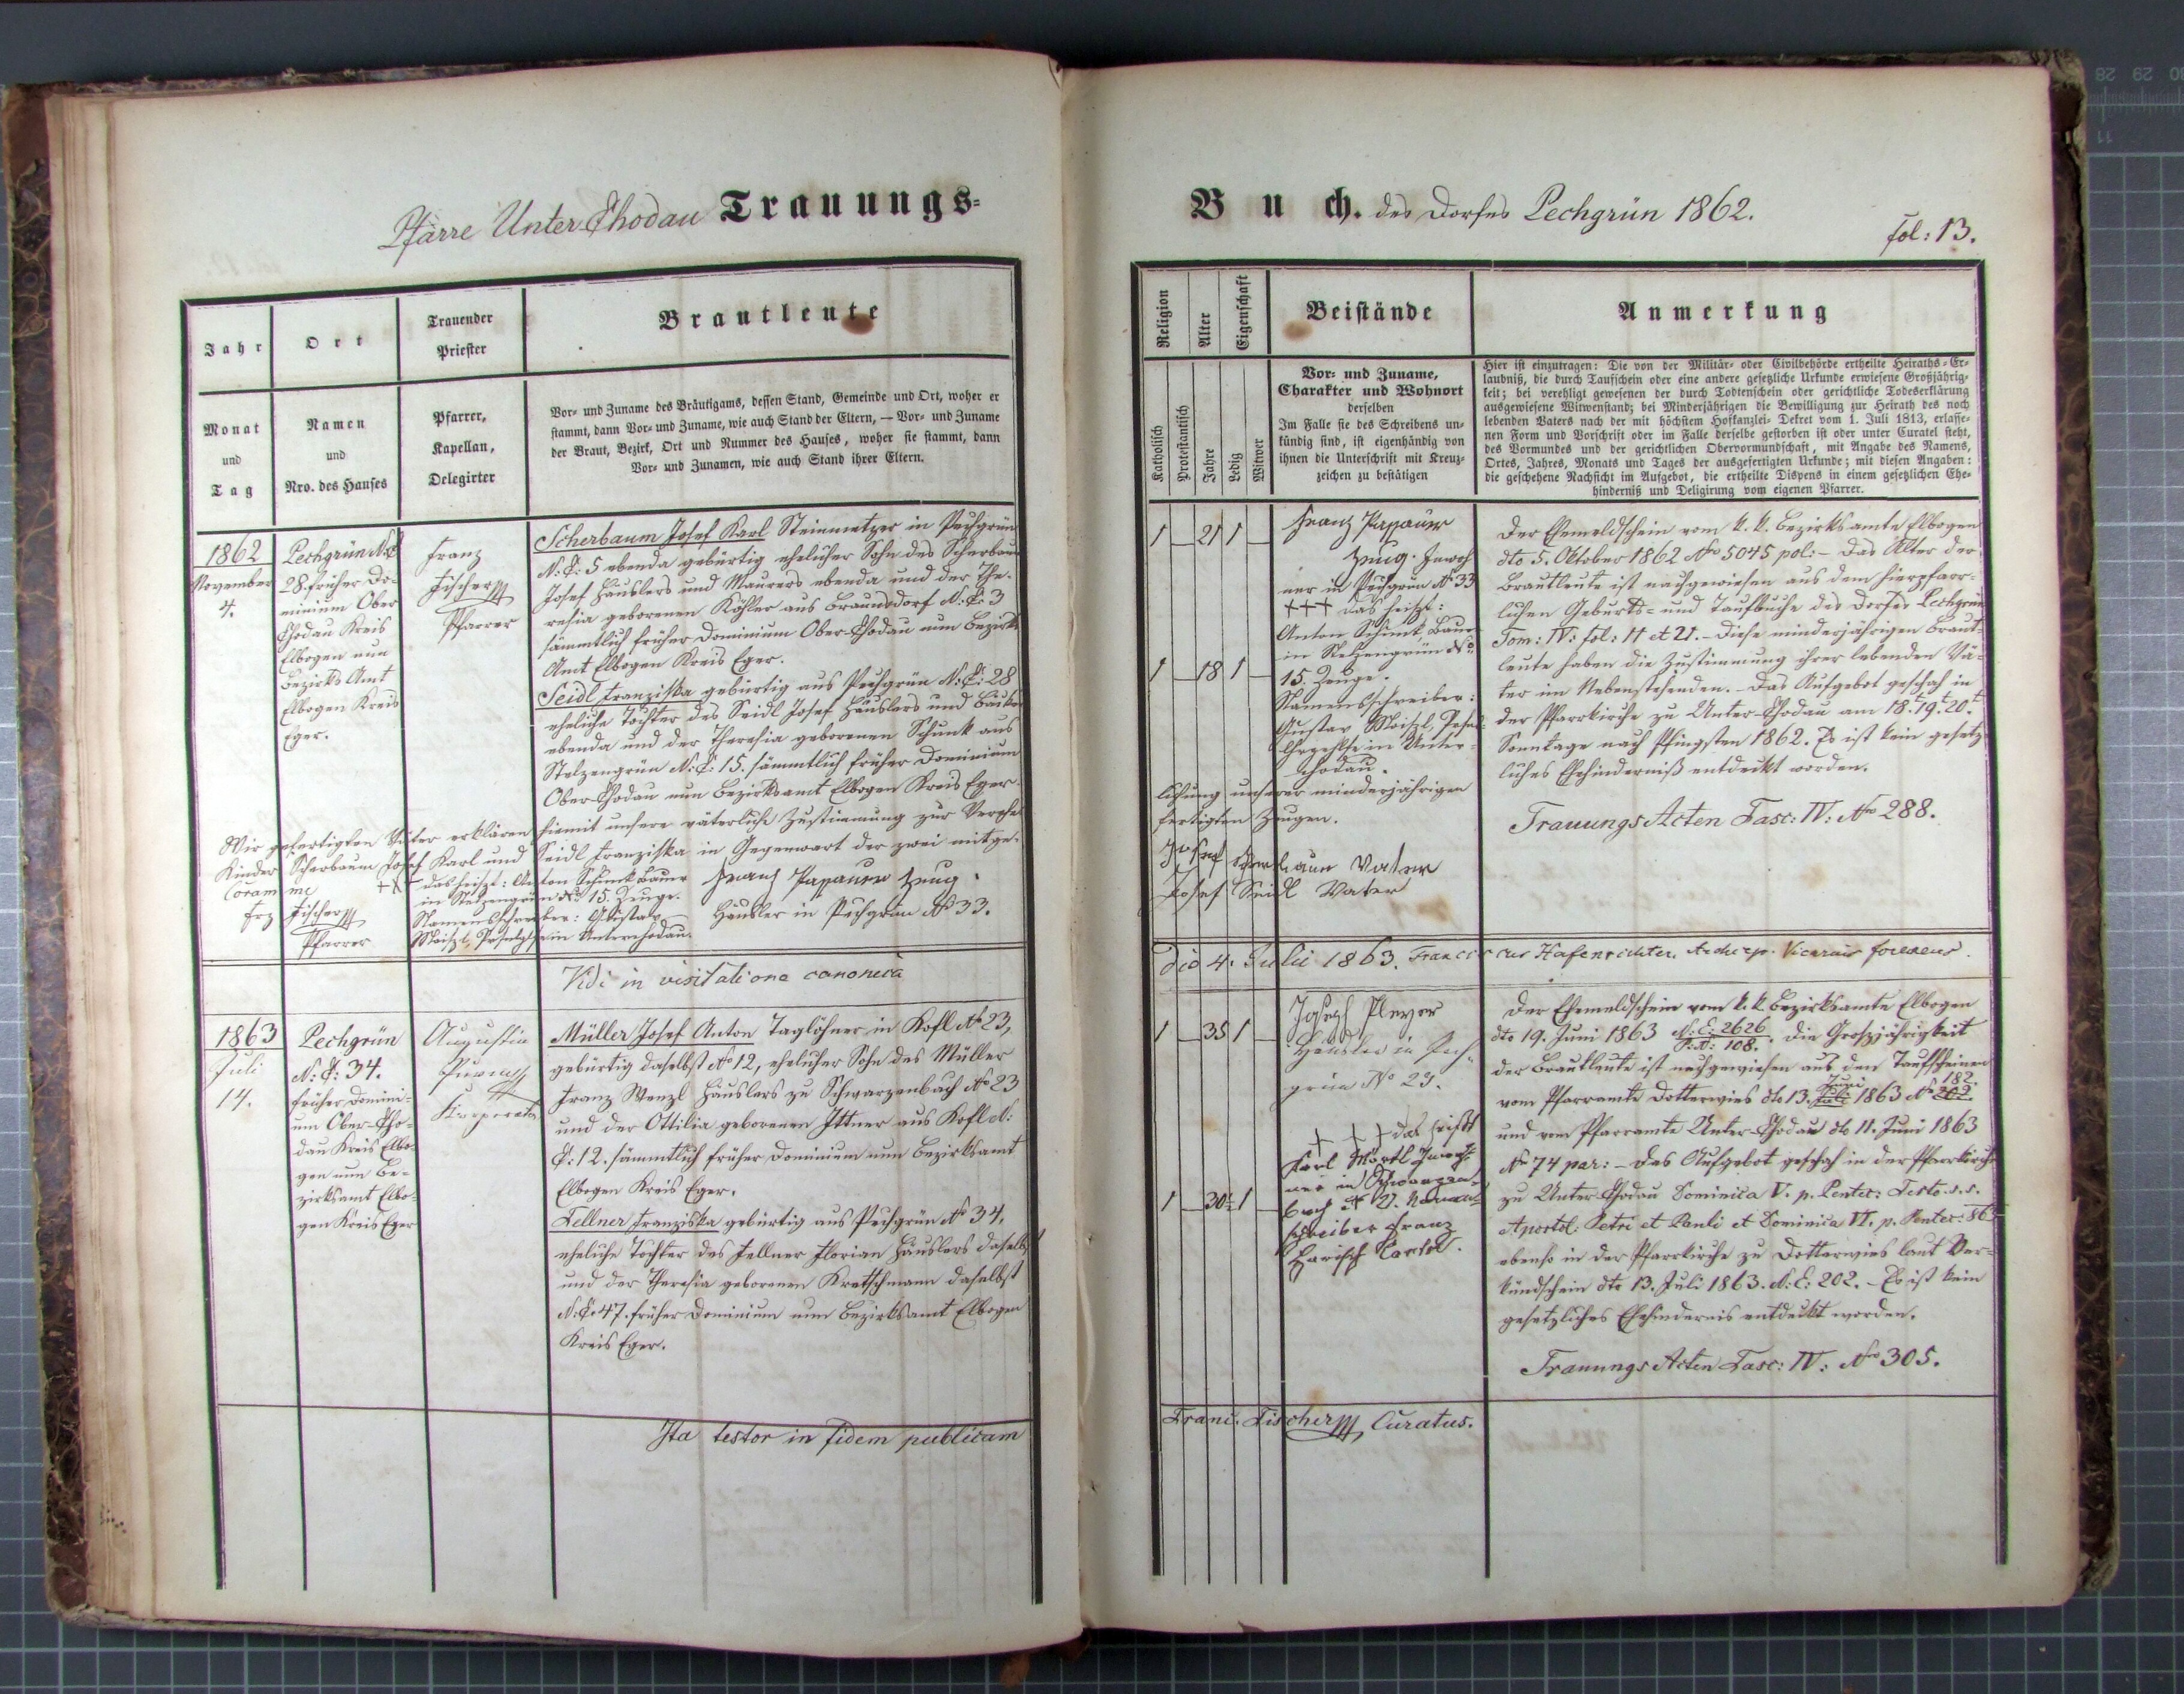 Pfarre Unter-Chodau Trauungs-
Jahr
Ort
Trauender
Priester
Brautleute
Monat
und
Tag
Namen
und
Nro. des Hauses
Pfarrer,
Kapellan,
Delegirter
Vor- und Zuname des Bräutigams, dessen Stand, Gemeinde und Ort, woher er
stammt, dann Vor- und Zuname, wie auch Stand der Eltern, — Vor- und Zuname
der Braut, Bezirk, Ort und Nummer des Hauses, woher sie stammt, dann
Vor- und Zunamen, wie auch Stand ihrer Eltern.
1862
November
4.
Pechgrün N:C:
28. früher Do-
minium Ober
Chodau Kreis
Elbogen nun
Bezirks Amt
Elbogen Kreis
Eger.
Franz
Fischer
Pfarrer
Scherbaum Josef Karl Steinmetzer in Pechgrün
N:C: 5 ebenda gebürtig ehelicher Sohn des Scherbaum
Josef Häuslers und Maurers ebenda und der The-
resia geborenen Köhler aus Braunsdorf N:C: 3
sämmtlich früher Dominium Ober-Chodau nun Bezirks
Amt Elbogen Kreis Eger.
Seidl Franziska gebürtig aus Pechgrün N:C: 28
eheliche Tochter des Seidl Josef Häuslers und
ebenda und der Theresia geborenen Schunk aus
Stelzengrün N:C: 15. sämmtlich früher Dominium
Ober-Chodau nun Bezirksamt Elbogen Kreis Eger.
Wir gefertigten Väter erklären hiemit unsere väterliche Zustimmung zur Verehe
Kinder Scherbaum Josef Karl und Seidl Franziska in Gegenwart der zwei mitge-
Coram me
Frz Fischer
Pfarrer
+++ das heiszt: Anton Schunk Bauer
in Stelzengrün No 15. Zeuge.
Namensschreiber: Gustav
Maiszl, in Unterchodau.
Franz Papauer Zeug.
Häusler in Pechgrün No 33.
Vidi in visitatione canonica
1863
Juli
14.
Pechgrün
N:C: 34.
früher Domini-
um Ober-Cho-
dau Kreis Elbo-
gen nun Be-
zirksamt Elbo-
gen Kreis Eger
Augustin
Müller Josef Anton Taglöhner in Kofl No 23,
gebürtig daselbst No 12, ehelicher Sohn des Müller
Franz Wenzl Häuslers zu Schwarzenbach No 23
und der Ottilia geborenen Ittner aus Kofl N:
C: 12. sämmtlich früher Dominium nun Bezirksamt
Elbogen Kreis Eger.
Fellner Franziska gebürtig aus Pechgrün No 34,
eheliche Tochter des Fellner Florian Häuslers daselbst
und der Theresia geborenen Kretschmann daselbst
N:C: 47. früher Dominium nun Bezirksamt Elbogen
Kreis Eger.
Ita testor in fidem publicam
Buch. des Dorfes Pechgrün 1862.
fol: 13.
Religion
Alter
Eigenschaft
Beistände
Anmerkung
Katholisch
Protestantisch
Jahre
Ledig
Witwer
Vor- und Zuname,
Charakter und Wohnort
derselben
Im Falle sie des Schreibens un-
kündig sind, ist eigenhändig von
ihnen die Unterschrift mit Kreuz-
zeichen zu bestätigen
Hier ist einzutragen: Die von der Militär- oder Civilbehörde ertheilte Heiraths-Er-
laubniß, die durch Taufschein oder eine andere gesetzliche Urkunde erwiesene Großjährig-
keit; bei verehligt gewesenen der durch Todtenschein oder gerichtliche Todeserklärung
ausgewiesene Witwenstand; bei Minderjährigen die Bewilligung zur Heirath des noch
lebenden Vaters nach der mit höchstem Hofkanzlei-Dekret vom 1. Juli 1813, erlasse-
nen Form und Vorschrift oder im Falle derselbe gestorben ist oder unter Curatel steht,
des Vormundes und der gerichtlichen Obervormundschaft, mit Angabe des Namens,
Ortes, Jahres, Monats und Tages der ausgefertigten Urkunde; mit diesen Angaben:
die geschehene Nachsicht im Aufgebot, die ertheilte Dispens in einem gesetzlichen Ehe-
hinderniß und Deligirung vom eigenen Pfarrer.
1 21 1
Franz Papauer
Zeug. Inwoh
ner in Pechgrün No 33
+++ das heiszt:
Anton Schunk Bauer
in Stelzengrün No
15. Zeuge.
Namensschreiber:
Gustav Maiszl
in Unter-
chodau.
1 18 1
Der Ehemeldschein vom k. k. Bezirksamte Elbogen
dto 5. Oktober 1862 Nro 5045 pol: – Das Alter der
Brautleute ist nachgewiesen aus dem hierpfarr-
lichen Geburts- und Taufbuche des Dorfes Pechgrün
Tom: IV: fol: 11 et 21. – Diese minderjährigen Braut-
leute haben die Zustimmung ihrer lebenden Vä-
ter im Nebenstehenden. – Das Aufgebot geschah in
der Pfarrkirche zu Unter-Chodau am 18. 19. 20.
Sonntage nach Pfingsten 1862. Es ist kein gesetz-
liches Ehehinderniß entdeckt worden.
Trauungs Acten Fasc: IV: Nro 288.
lichung unserer minderjährigen
fertigten Zeugen.
Josef Scherbaum Vater
Josef Seidl Vater
die 4. Julii 1863. Franciscus Hafenrichter, Archiep. Vicarius foraneus.
1 35 1
Joseph Pleyer
Häusler in Pech-
grün No 29.
+ + + das heißt
Karl Inwoh-
ner in Schwarzen-
bach No 27. Namens-
schreiber Franz
1 30 1
Der Ehemeldschein vom k. k. Bezirksamte Elbogen
dto 19. Juni 1863 N:E: 2626 / P:N: 108. Die Groszjährigkeit
der Brautleute ist nachgewiesen aus den Taufscheinen
vom Pfarramte Dotterwies dto 13. Juli Juni 1863 No 202. 182.
und vom Pfarramte Unter-Chodau dto 11. Juni 1863
No 74 par: – Das Aufgebot geschah in der Pfarrkirche
zu Unter-Chodau Dominica V. p. Pentec: Festo s.s.
Apostol. Petri et Pauli et Dominica VI. p. Pentec: 863
ebenso in der Pfarrkirche zu Dotterwies laut Ver-
kündschein dto 13. Juli 1863. N:E: 202. – Es ist kein
gesetzliches Ehehindernis entdeckt worden.
Trauungs Acten Fasc: IV: Nro 305.
Franc. Fischer Curatus.